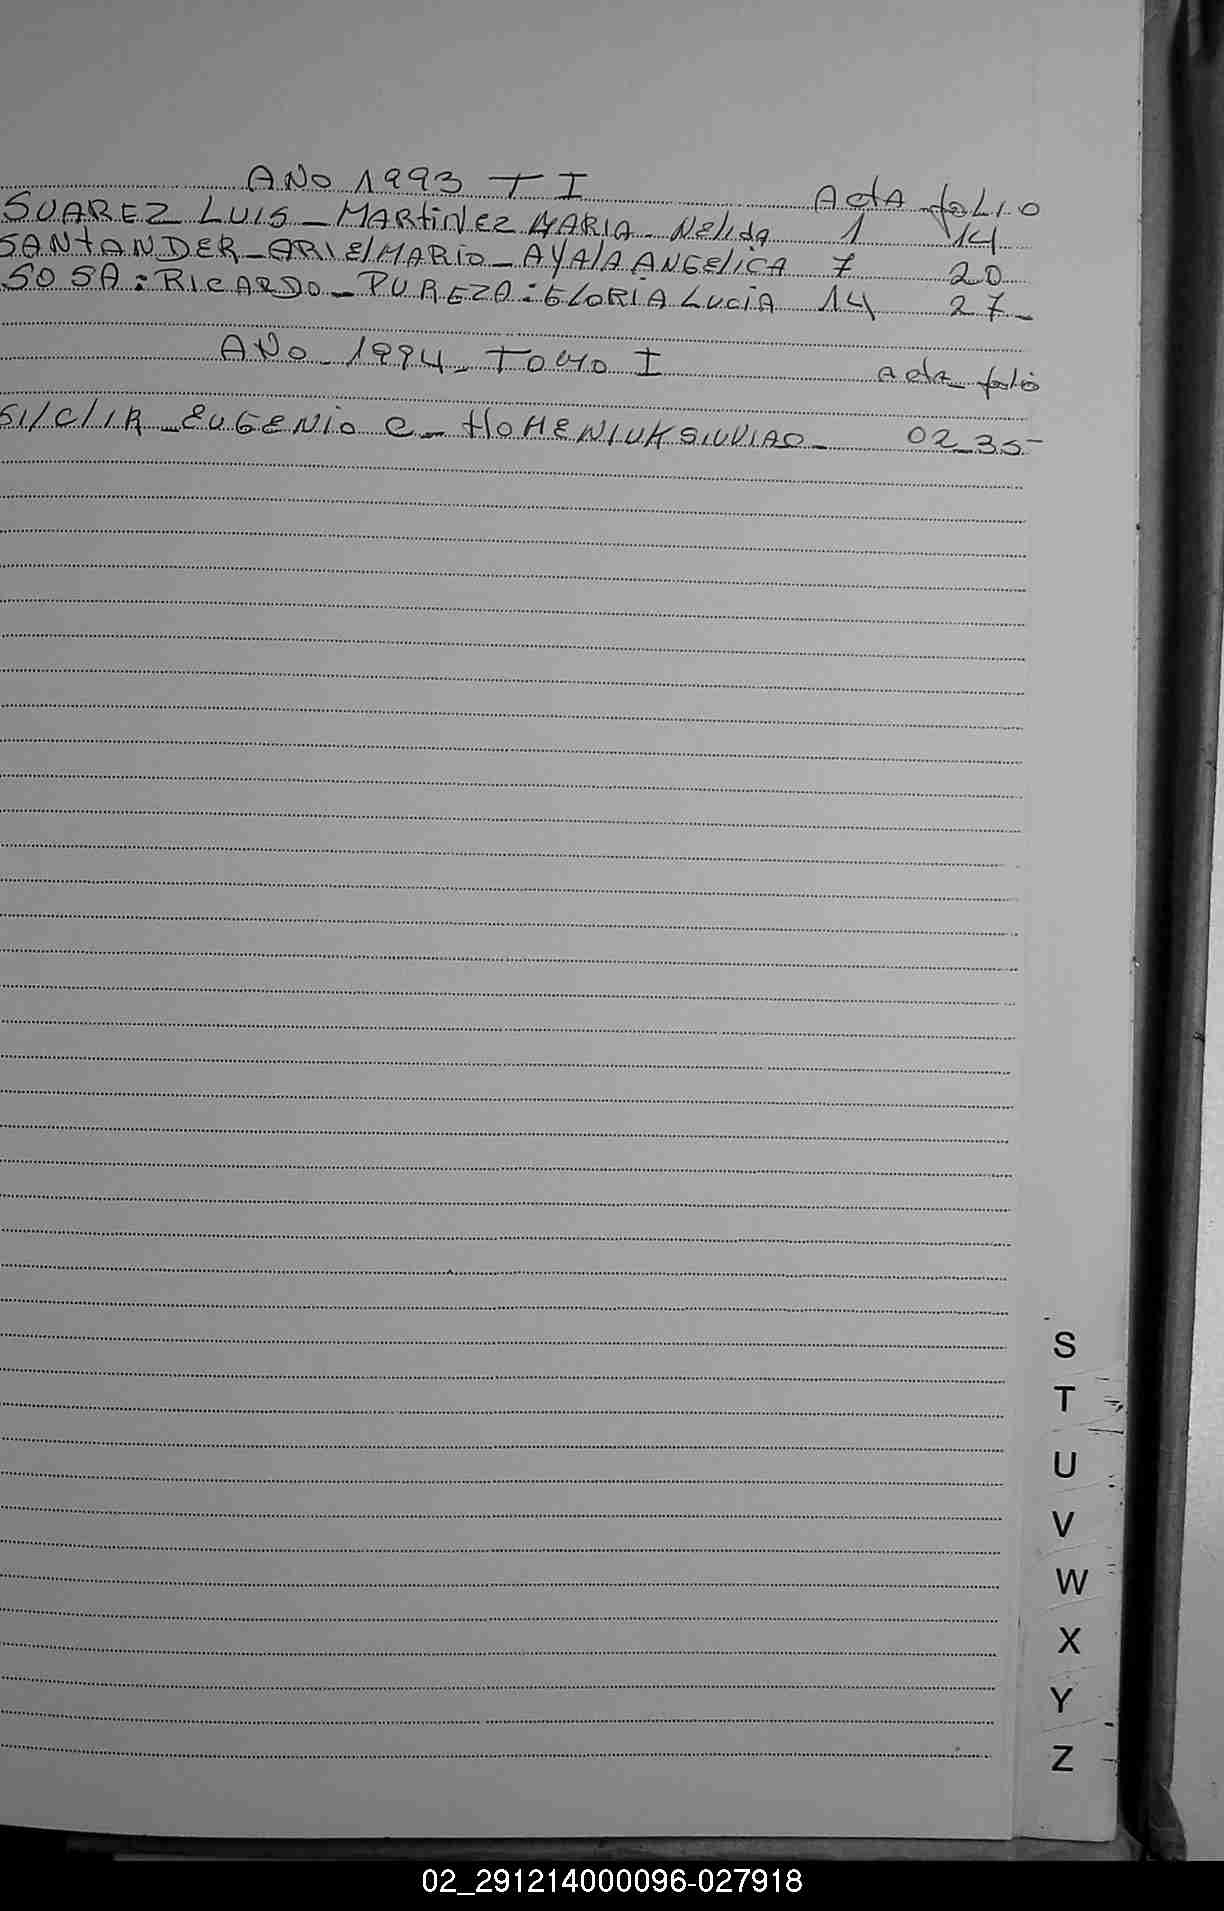 AÑO 1993 T I
Acta folio
SUAREZ LUIS - MARtiNez MARIA Nelida 1 14
SANtANDER - ARIElMARiO - AYAlA ANGElICA 7 20
SOSA: RICARDO - PUREZA: GLORIA LUCIA 14 27-
AÑO - 1994 - TOMO I
acta folio
EUGENIO C - HOMENIUK 02 - 35-
S
T
U
V
W
X
Y
Z
02_291214000096-027918